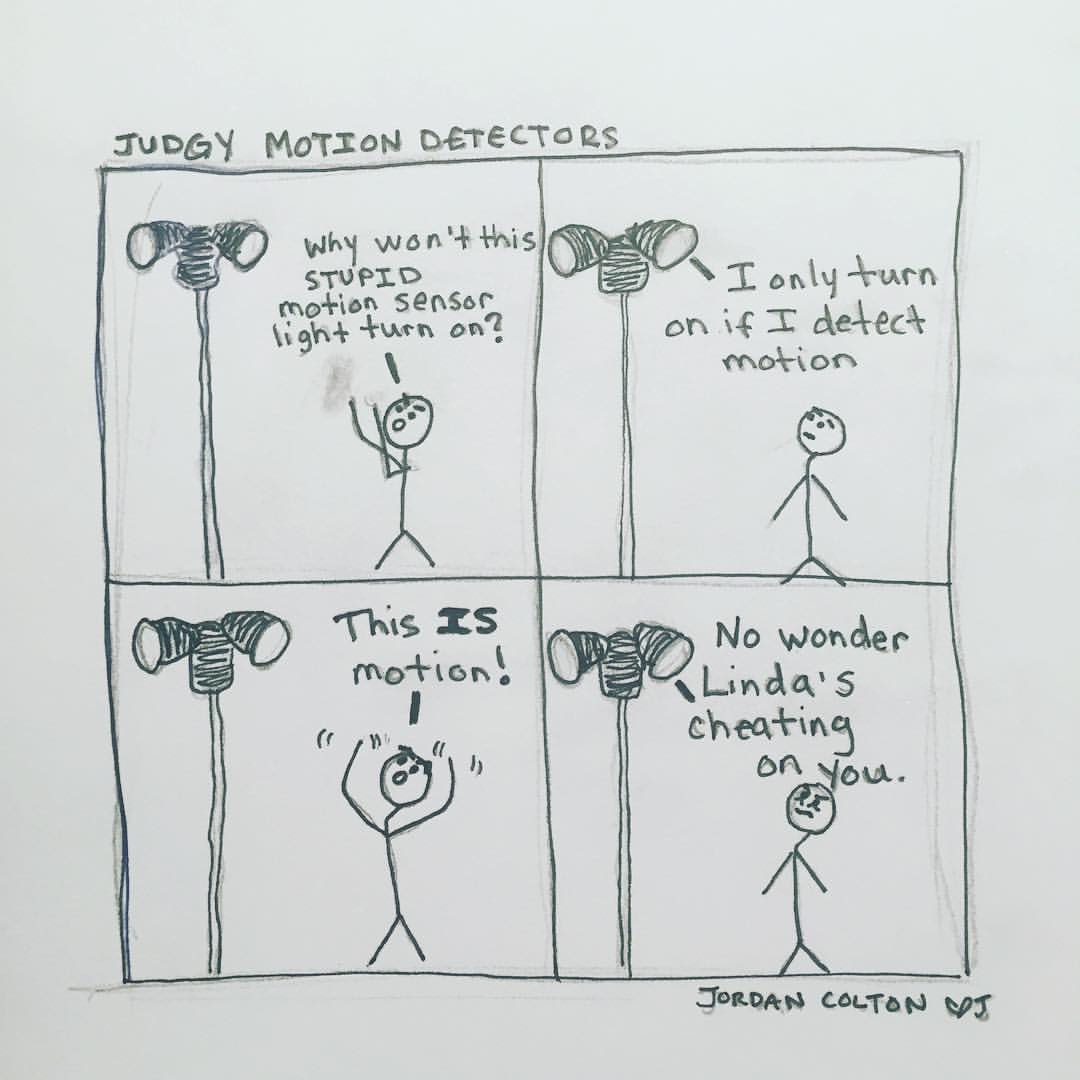 JUDGY MOTION DETECTORS
Why won't this
STUPID
motion sensor
light turn on?
I only turn
on if I detect
motion
This IS
motion!
No wonder
Linda's
cheating
on you.
JORDAN COLTON ♥J